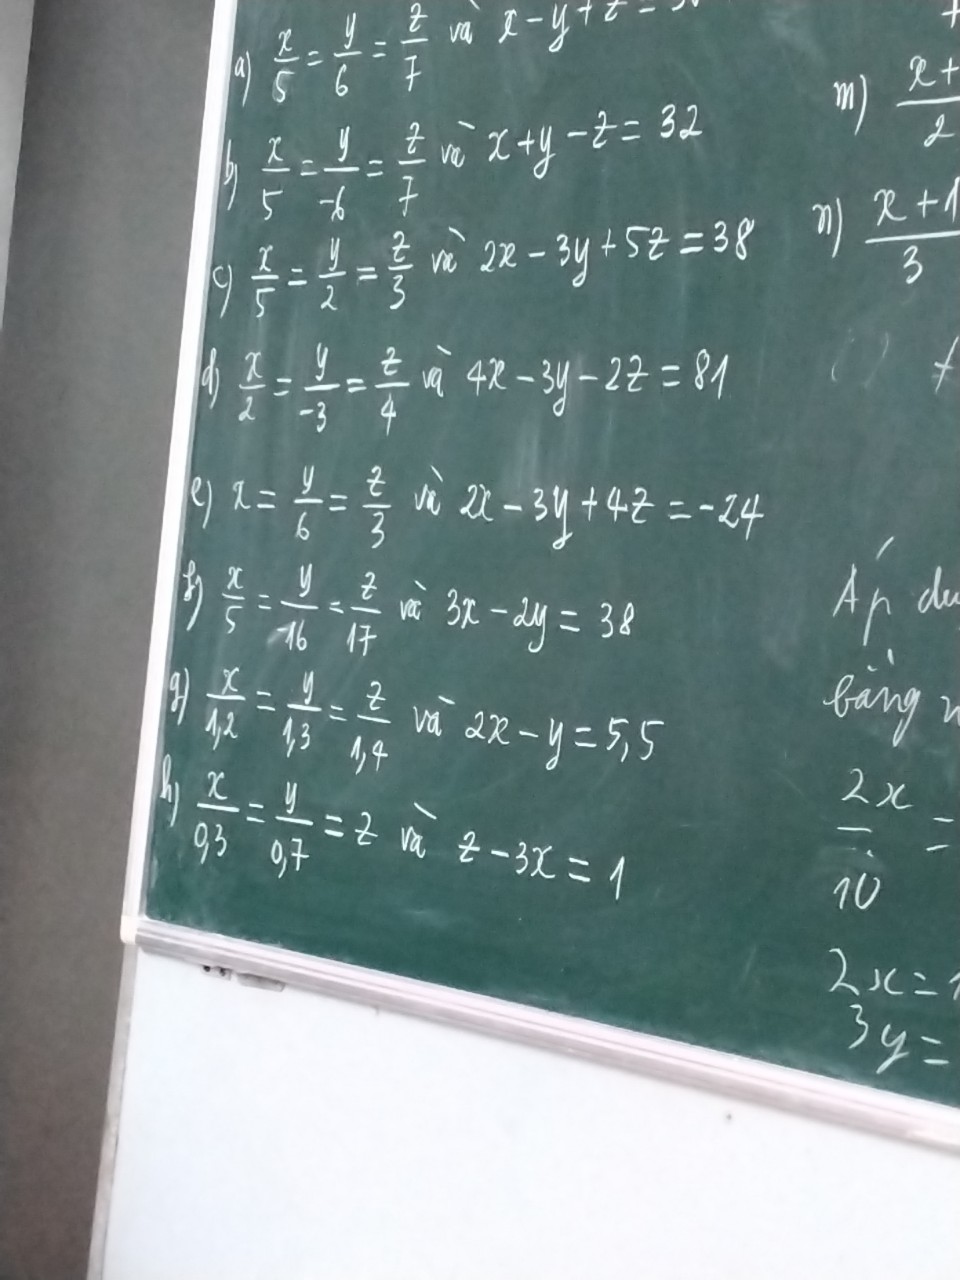 a) x/5 = y/6 = z/7 và x - y + z =
b) x/5 = y/-6 = z/7 và x + y - z = 32
c) x/5 = y/2 = z/3 và 2x - 3y + 5z = 38
d) x/2 = y/-3 = z/4 và 4x - 3y - 2z = 81
e) x = y/6 = z/3 và 2x - 3y + 4z = -24
f) x/5 = y/-16 = z/17 và 3x - 2y = 38
g) x/1,2 = y/1,3 = z/1,4 và 2x - y = 5,5
h) x/0,3 = y/0,7 = z và z - 3x = 1
m) x+ /2
n) x+1 /3
Áp
bằng
2x/10 =
2x =
3y =